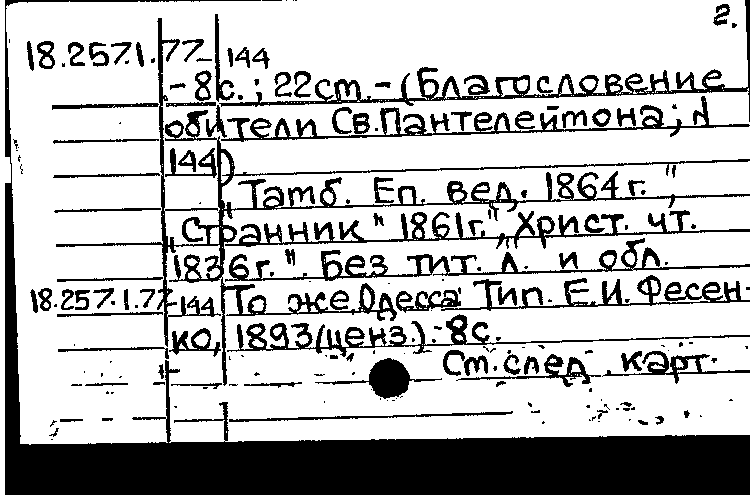 2.
18.257.1.77-144
.-8с.; 22ст.-(Благословение
обители Св.Пантелеймона; №
144).
"Тамб. Еп. вед. 1864г.",
"Странник" 1861г.", Христ. чт.
1836г.". Без тит. л. и обл.
18.257.1.77-144 То же. Одесса: Тип. Е.И. Фесен-
ко, 1893(ценз.).-8с.
См. след. карт.